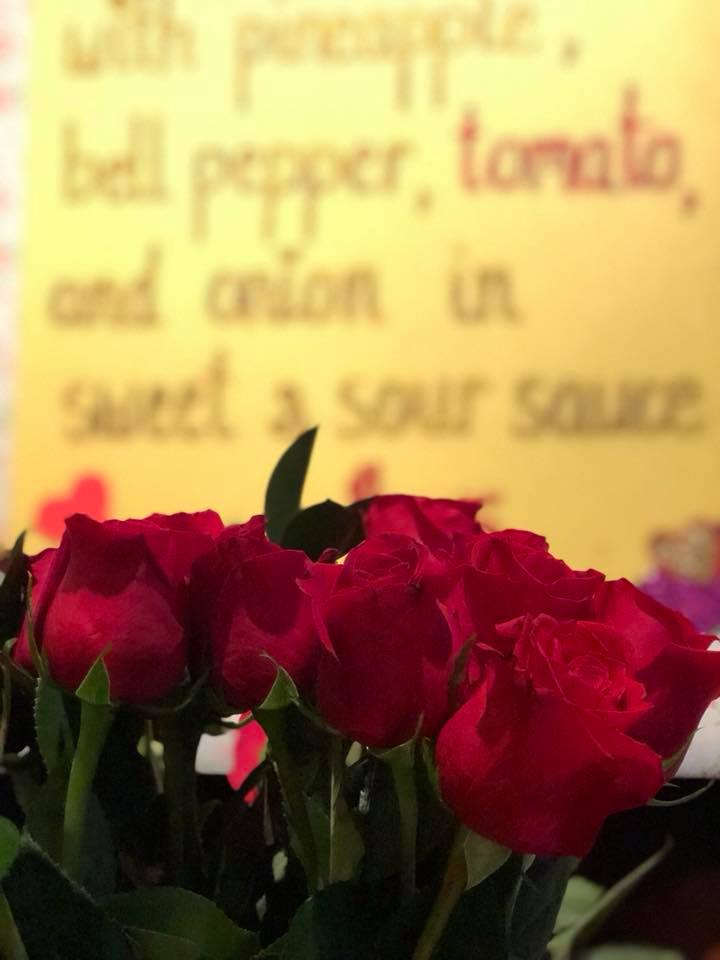 with pineapple,
bell pepper, tomato,
and onion in
sweet & sour sauce